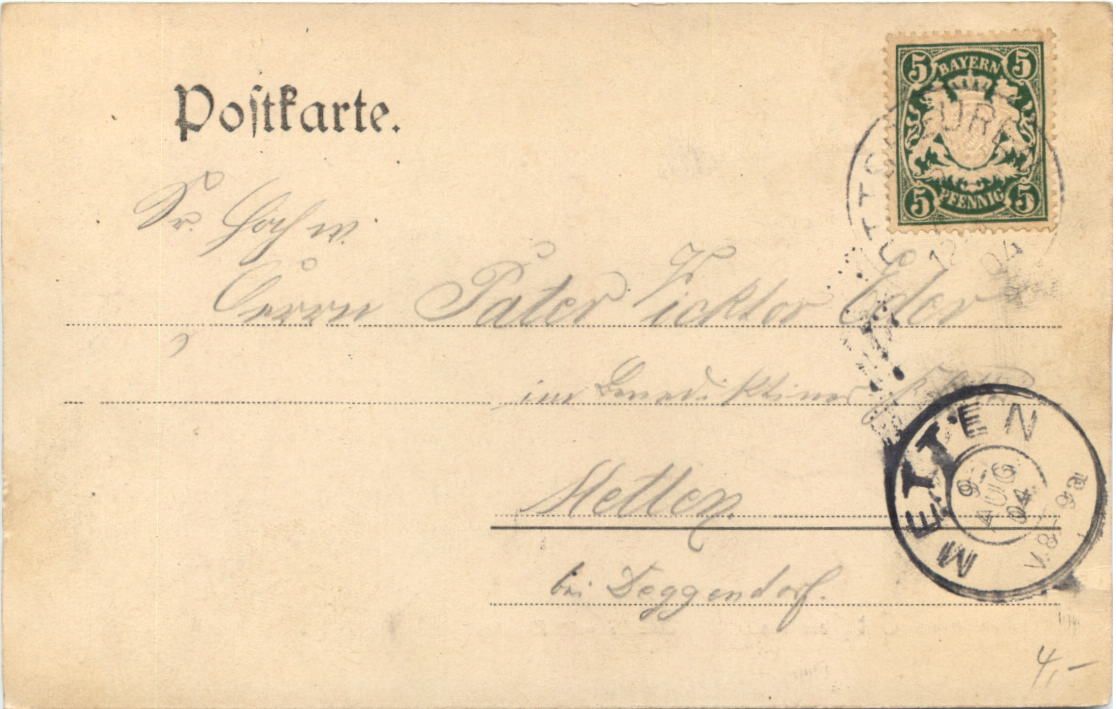 Postkarte.
BAYERN
5 5
5 5
PFENNIG
Sr. Hochw.
Herrn Pater Vicktor Eder
im Benediktiner
Metten
bei Deggendorf.
METTEN
9.
AUG
04
V.8-9a
4,-